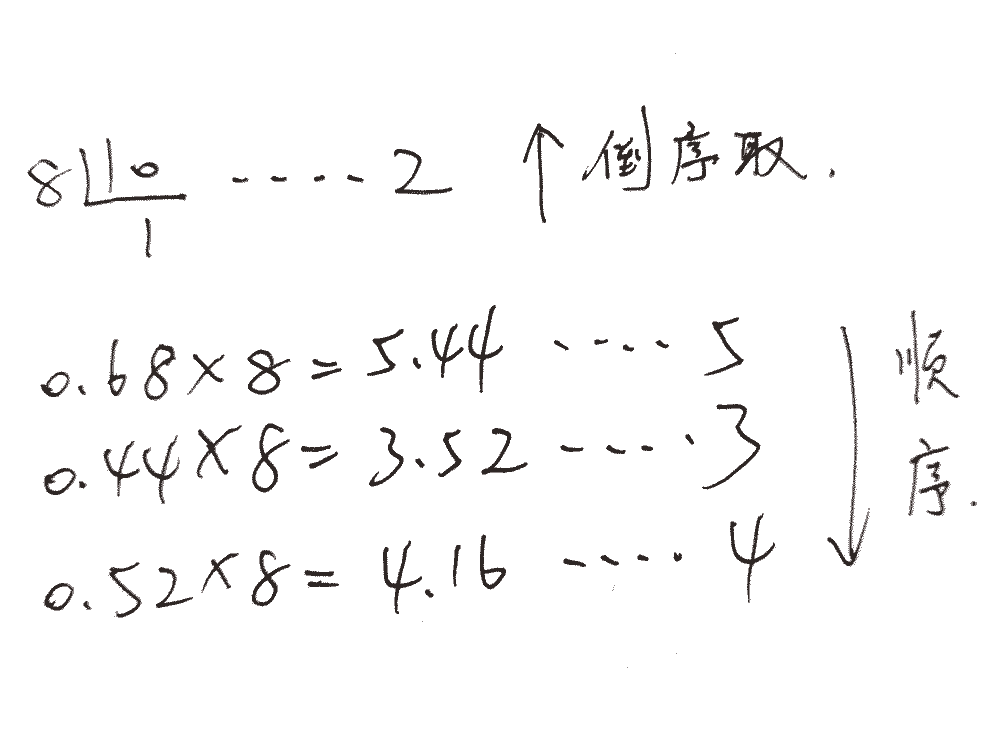 8 10 ---- 2 ↑ 倒序取.
1
0.68×8=5.44 ---- 5
0.44×8=3.52 ---- 3
0.52×8=4.16 ---- 4
顺序.